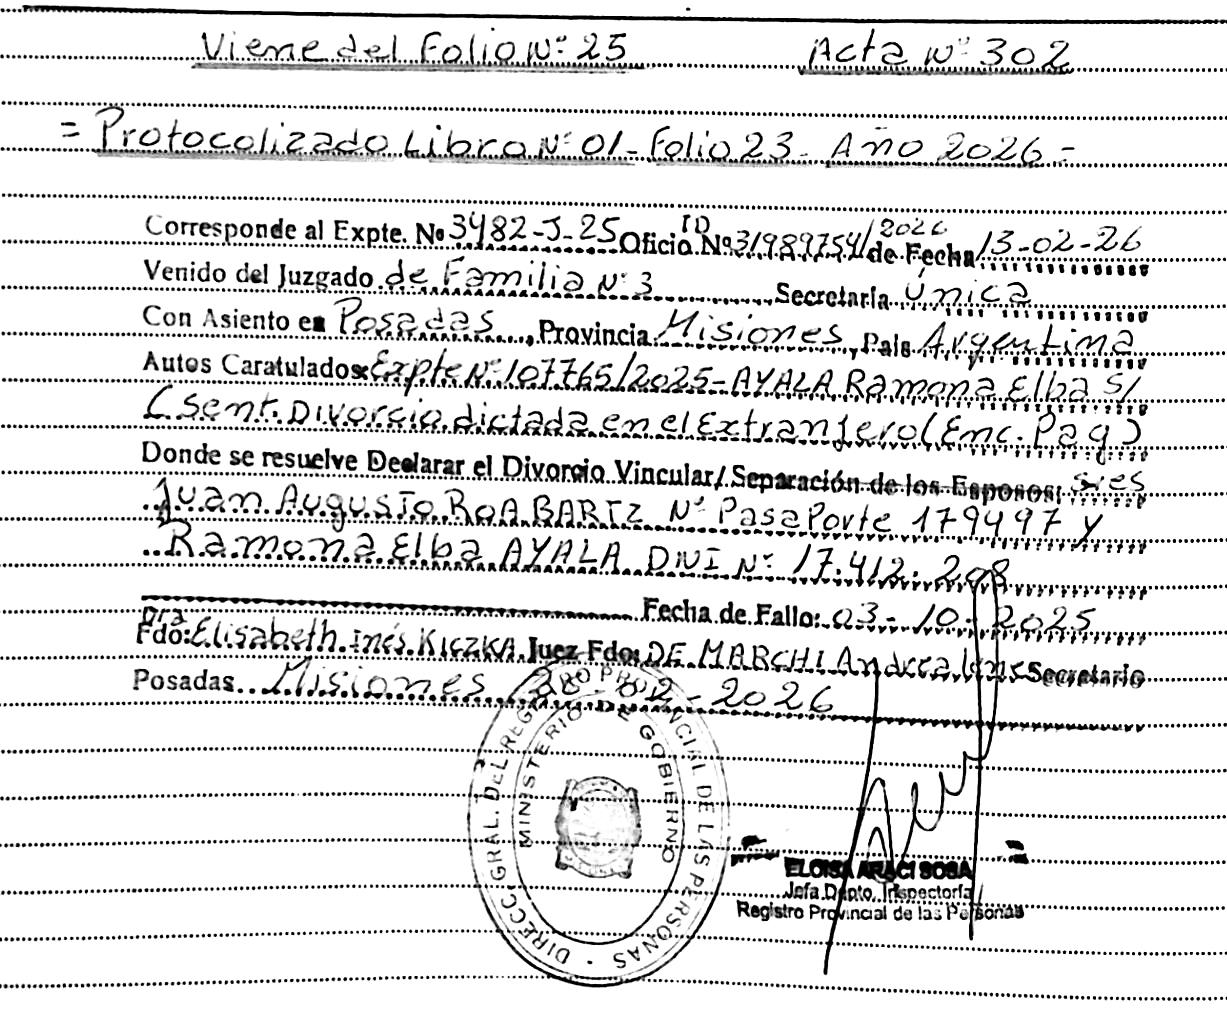 Viene del Folio Nº 25 Acta Nº 302
= Protocolizado Libro Nº 01 - Folio 23 - Año 2026 =
Corresponde al Expte. Nº 3482-J-25 Oficio ID Nº 31989754/2026 de Fecha 13-02-26
Venido del Juzgado de Familia Nº 3 Secretaría Única
Con Asiento en Posadas, Provincia Misiones, País Argentina
Autos Caratulados: Expte Nº 107765/2025 - AYALA Ramona Elba S/
(sent. Divorcio dictada en el Extranjero (Enc. Pag)
Donde se resuelve Declarar el Divorcio Vincular/ Separación de los Esposos:
Juan Augusto ROA BARTZ Nº Pasaporte 179497 y
Ramona Elba AYALA DNI Nº 17.412.208
Fecha de Fallo: 03-10-2025
Fdo: Dra Elisabeth Inés KICZKA Juez Fdo: DE MARCHI Andrea Secretario
Posadas Misiones 02-2026
DIRECC. GRAL. DEL REGISTRO PROVINCIAL DE LAS PERSONAS
MINISTERIO DE GOBIERNO
ELOISA ARACI SOSA
Jefa Dpto. Inspectoría
Registro Provincial de las Personas